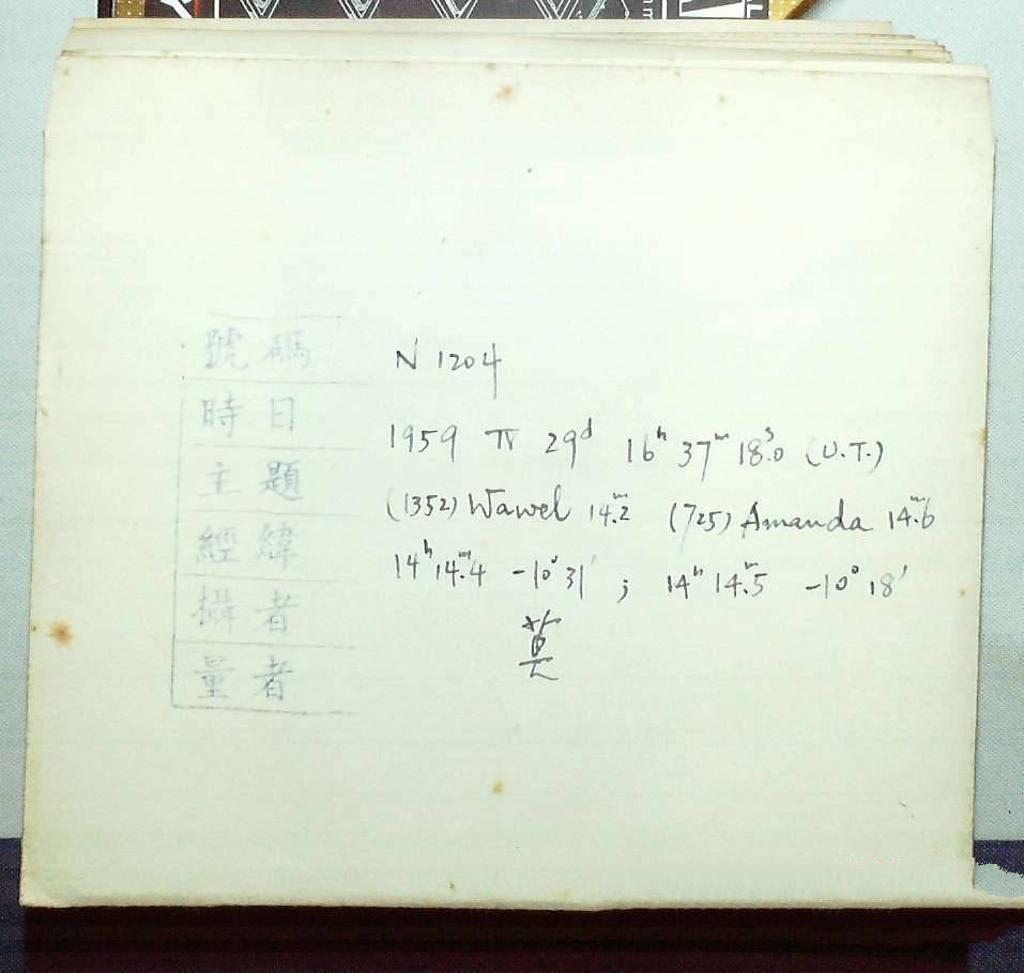 號碼 N 1204
時日 1959 IV 29ᵈ 16ʰ 37ᵐ 18ˢ.0 (U.T.)
主題 (1352) Wawel 14ᵐ.2 (725) Amanda 14ᵐ.6
經緯 14ʰ 14ᵐ.4 -10° 31′ ; 14ʰ 14ᵐ.5 -10° 18′
攝者
量者